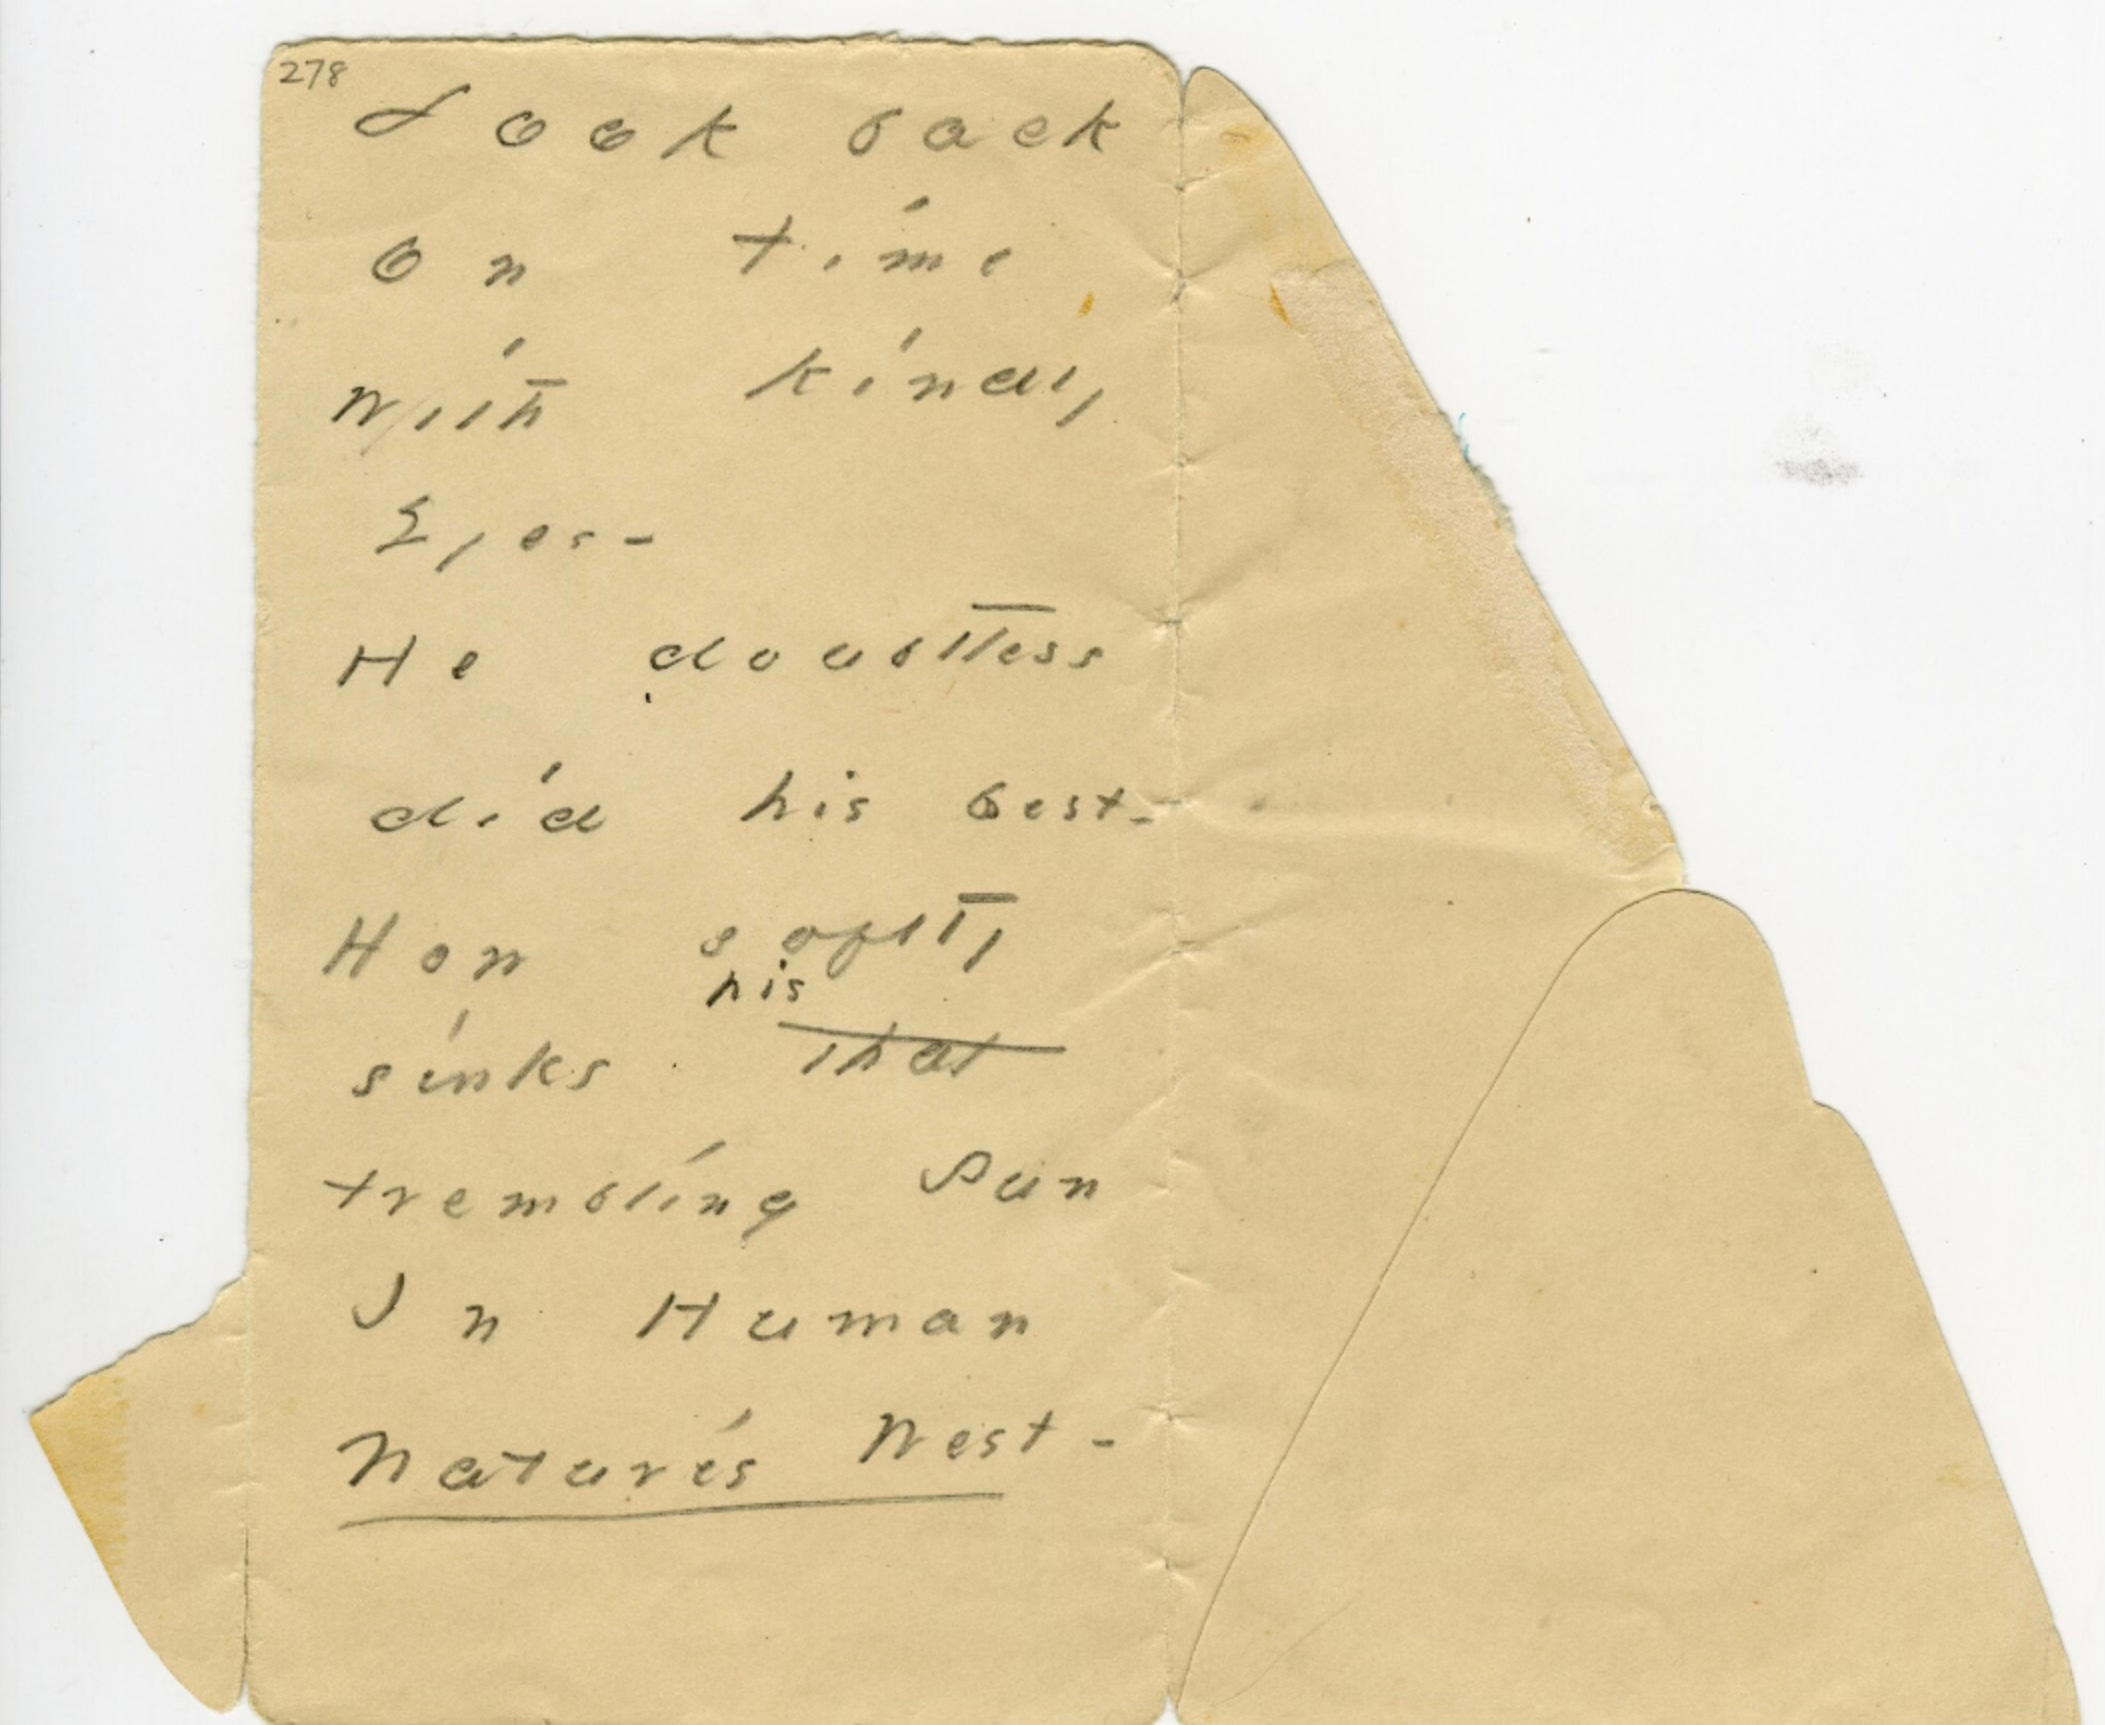 278
Look back
on time
with kindly
Eyes -
He doubtless
did his best -
How softly
his
sinks that
trembling Sun
In Human
Nature's West -